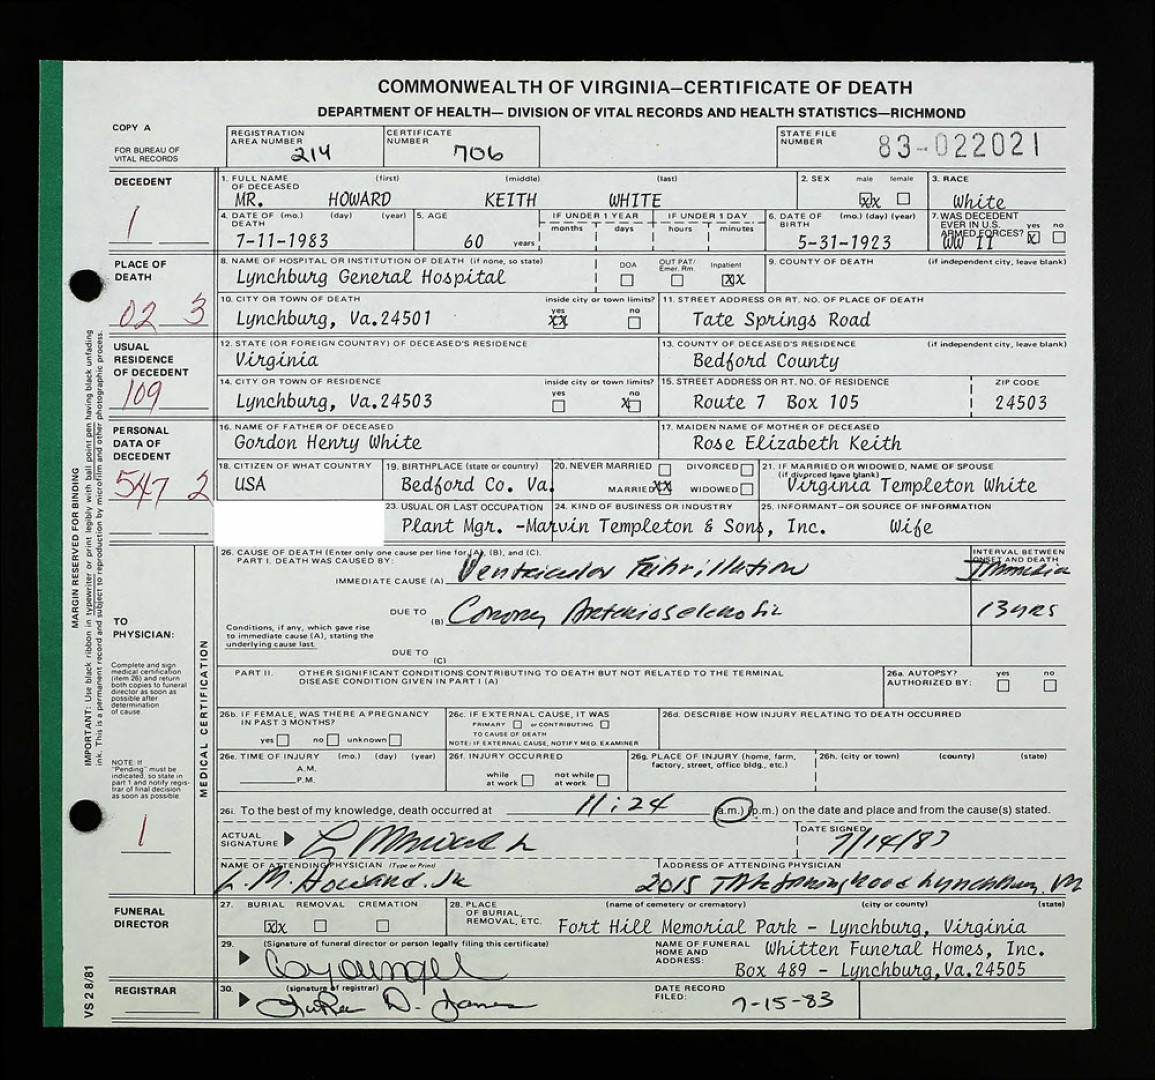 COMMONWEALTH OF VIRGINIA—CERTIFICATE OF DEATH
DEPARTMENT OF HEALTH— DIVISION OF VITAL RECORDS AND HEALTH STATISTICS—RICHMOND
COPY A
FOR BUREAU OF VITAL RECORDS
REGISTRATION AREA NUMBER 214
CERTIFICATE NUMBER 706
STATE FILE NUMBER 83-022021
DECEDENT
1
1. FULL NAME OF DECEASED (first) (middle) (last)
MR. HOWARD KEITH WHITE
2. SEX male female
xx
3. RACE
White
4. DATE OF DEATH (mo.) (day) (year)
7-11-1983
5. AGE
60 years
IF UNDER 1 YEAR months days
IF UNDER 1 DAY hours minutes
6. DATE OF BIRTH (mo.) (day) (year)
5-31-1923
7. WAS DECEDENT EVER IN U.S. ARMED FORCES? yes no
WW II x
PLACE OF DEATH
02 3
8. NAME OF HOSPITAL OR INSTITUTION OF DEATH (if none, so state)
Lynchburg General Hospital
DOA OUT PAT/ Emer. Rm. Inpatient
xx
9. COUNTY OF DEATH (if independent city, leave blank)
10. CITY OR TOWN OF DEATH inside city or town limits? yes no
Lynchburg, Va.24501 xx
11. STREET ADDRESS OR RT. NO. OF PLACE OF DEATH
Tate Springs Road
USUAL RESIDENCE OF DECEDENT
109
12. STATE (OR FOREIGN COUNTRY) OF DECEASED'S RESIDENCE
Virginia
13. COUNTY OF DECEASED'S RESIDENCE (if independent city, leave blank)
Bedford County
14. CITY OR TOWN OF RESIDENCE inside city or town limits? yes no
Lynchburg, Va.24503 x
15. STREET ADDRESS OR RT. NO. OF RESIDENCE
Route 7 Box 105
ZIP CODE
24503
PERSONAL DATA OF DECEDENT
547 2
16. NAME OF FATHER OF DECEASED
Gordon Henry White
17. MAIDEN NAME OF MOTHER OF DECEASED
Rose Elizabeth Keith
18. CITIZEN OF WHAT COUNTRY
USA
19. BIRTHPLACE (state or country)
Bedford Co. Va.
20. NEVER MARRIED DIVORCED
MARRIED xx WIDOWED
21. IF MARRIED OR WIDOWED, NAME OF SPOUSE (if divorced leave blank)
Virginia Templeton White
23. USUAL OR LAST OCCUPATION
24. KIND OF BUSINESS OR INDUSTRY
25. INFORMANT—OR SOURCE OF INFORMATION
Plant Mgr. -Marvin Templeton & Sons, Inc. Wife
MARGIN RESERVED FOR BINDING
IMPORTANT: Use black ribbon in typewriter or print legibly with ball point pen having black unfading
ink. This is a permanent record and subject to reproduction by microfilm and other photographic process.
TO PHYSICIAN:
Complete and sign medical certification (item 26) and return both copies to funeral director as soon as possible after determination of cause.
NOTE: If "Pending" must be indicated, so state in part 1 and notify registrar of final decision as soon as possible.
1
MEDICAL CERTIFICATION
26. CAUSE OF DEATH (Enter only one cause per line for (A), (B), and (C).
PART I. DEATH WAS CAUSED BY:
INTERVAL BETWEEN ONSET AND DEATH
IMMEDIATE CAUSE (A) Ventricular Fibrillation
DUE TO (B) Coronary Arteriosclerotic 13 yrs
Conditions, if any, which gave rise to immediate cause (A), stating the underlying cause last.
DUE TO (C)
PART II. OTHER SIGNIFICANT CONDITIONS CONTRIBUTING TO DEATH BUT NOT RELATED TO THE TERMINAL DISEASE CONDITION GIVEN IN PART I (A)
26a. AUTOPSY? yes no
AUTHORIZED BY:
26b. IF FEMALE, WAS THERE A PREGNANCY IN PAST 3 MONTHS?
yes no unknown
26c. IF EXTERNAL CAUSE, IT WAS
PRIMARY or CONTRIBUTING
TO CAUSE OF DEATH
NOTE: IF EXTERNAL CAUSE, NOTIFY MED. EXAMINER
26d. DESCRIBE HOW INJURY RELATING TO DEATH OCCURRED
26e. TIME OF INJURY (mo.) (day) (year)
A.M.
P.M.
26f. INJURY OCCURRED
while at work not while at work
26g. PLACE OF INJURY (home, farm, factory, street, office bldg., etc.)
26h. (city or town) (county) (state)
26i. To the best of my knowledge, death occurred at 11:24 (a.m.) (p.m.) on the date and place and from the cause(s) stated.
ACTUAL SIGNATURE
DATE SIGNED
7/14/83
NAME OF ATTENDING PHYSICIAN (Type or Print)
L. M. Howard, Jr
ADDRESS OF ATTENDING PHYSICIAN
2015 Tate Spring Road Lynchburg, Va
FUNERAL DIRECTOR
27. BURIAL REMOVAL CREMATION
xx
28. PLACE OF BURIAL, REMOVAL, ETC. (name of cemetery or crematory) (city or county) (state)
Fort Hill Memorial Park - Lynchburg, Virginia
29. (Signature of funeral director or person legally filing this certificate)
NAME OF FUNERAL HOME AND ADDRESS:
Whitten Funeral Homes, Inc.
Box 489 - Lynchburg,Va.24505
REGISTRAR
30. (signature of registrar)
D. James
DATE RECORD FILED:
7-15-83
VS 2 8/81